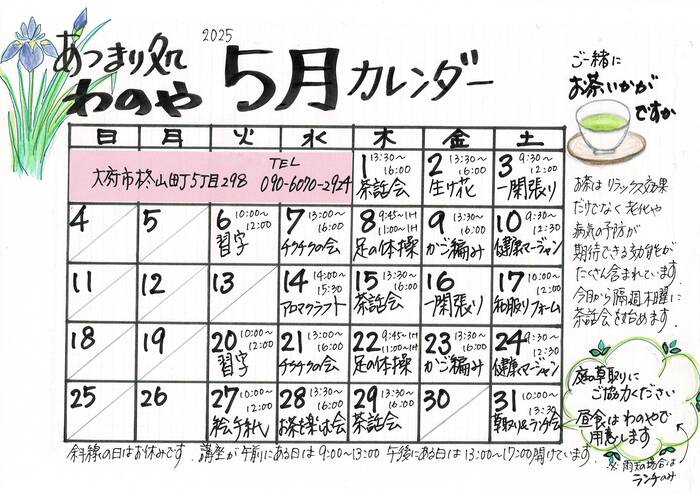 2025
あつまり処
わのや
5月カレンダー
ご一緒に
お茶いかが
ですか
日 月 火 水 木 金 土
大府市柊山町5丁目298
TEL
090-6070-2924
1 13:30~16:00 茶話会
2 13:30~16:00 生け花
3 9:30~12:00 一閑張り
4
5
6 10:00~12:00 習字
7 13:00~16:00 チクチクの会
8 9:45~1H 11:00~1H 足の体操
9 13:30~16:00 かご編み
10 9:30~12:30 健康マージャン
11
12
13
14 14:00~15:30 アロマクラフト
15 13:30~16:00 茶話会
16 一閑張り
17 10:00~12:00 和服リフォーム
18
19
20 10:00~12:00 習字
21 13:00~16:00 チクチクの会
22 9:45~1H 11:00~1H 足の体操
23 13:30~16:00 かご編み
24 9:30~12:30 健康マージャン
25
26
27 10:00~12:00 絵手紙
28 13:30~16:00 お茶を楽しむ会
29 13:30~16:00 茶話会
30
31 10:00~13:30 草取り&ランチ会
お茶は リラックス効果
だけでなく 老化や
病気の予防が
期待できる効能が
たくさん含まれています.
今月から隔週木曜に
茶話会を始めます.
庭の草取りに
ご協力ください
昼食は わのやで
用意します
※雨天の場合は
ランチのみ
斜線の日はお休みです. 講座が午前にある日は 9:00~13:00 午後にある日は 13:00~17:00 開けています.